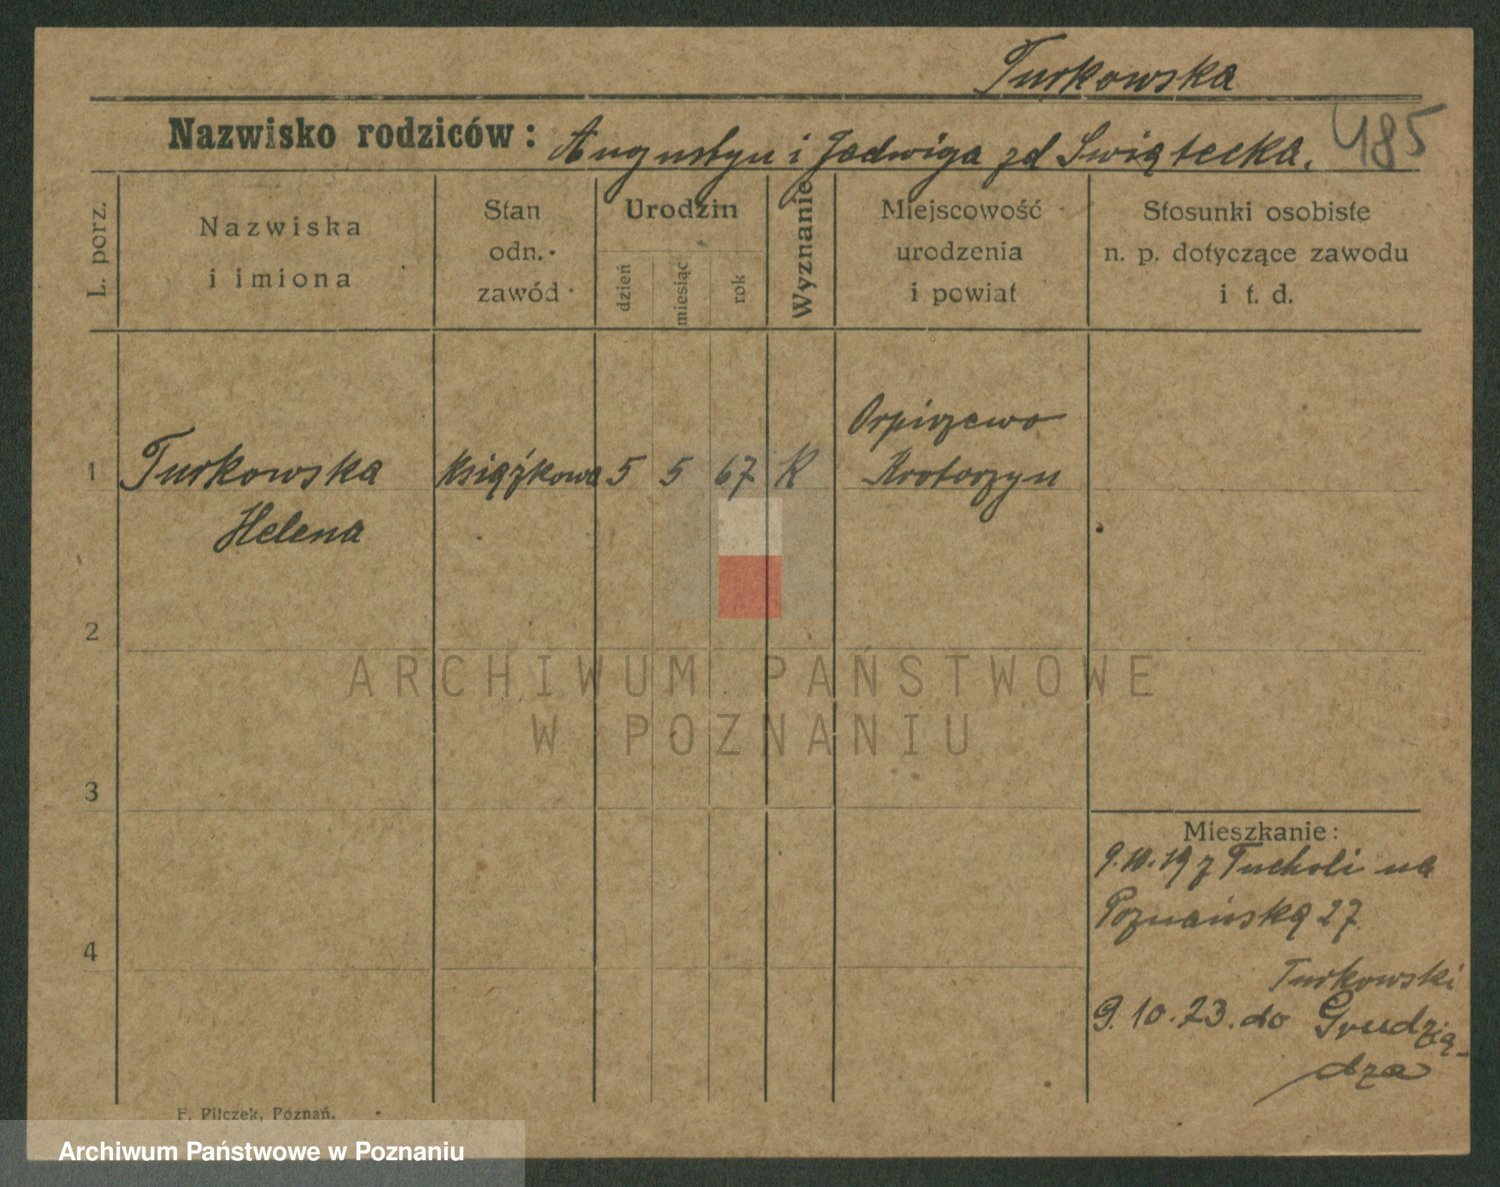 Turkowska
Nazwisko rodziców: Augustyn i Jadwiga zd Swiątecka.
485
L. porz.
Nazwiska
i imiona
Stan
odn.
zawód
Urodzin
dzień
miesiąc
rok
Wyznanie
Miejscowość
urodzenia
i powiat
Stosunki osobiste
n. p. dotyczące zawodu
i t. d.
Orpiszewo
1 Turkowska książkowa 5 5 67 K Krotoszyn
Helena
2
ARCHIWUM PAŃSTWOWE
W POZNANIU
3
Mieszkanie:
9.10.19 z Tucholi na
Poznańską 27
4
Turkowski
9.10.23. do Grudzią-
dza
F. Pilczek, Poznań.
Archiwum Państwowe w Poznaniu